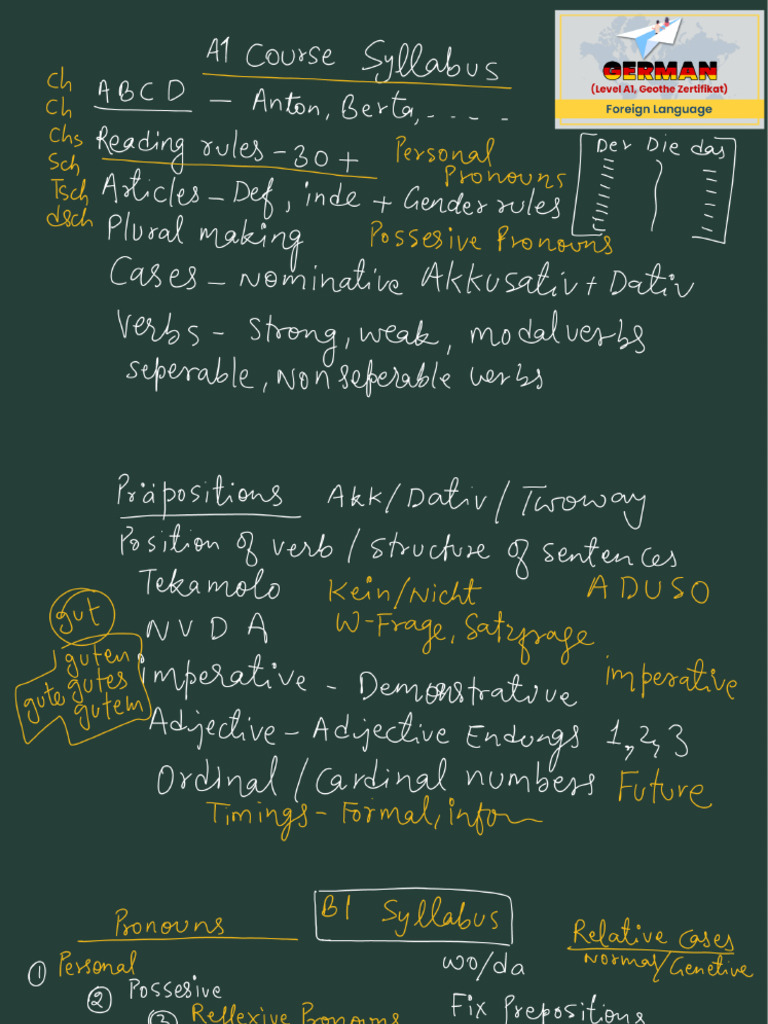 A1 Course Syllabus
GERMAN
(Level A1, Geothe Zertifikat)
Foreign Language
Ch
Ch
Chs
Sch
Tsch
dsch
A B C D – Anton, Berta, . . . . .
Reading rules – 30 +
Personal Pronouns
Der Die das
Articles – Def, inde + Gender rules
Plural making
Possesive Pronouns
Cases – Nominative Akkusativ + Dativ
Verbs – Strong, weak, modal verbs
seperable, Non seperable verbs
Präpositions Akk/Dativ/Twoway
Position of verb / structure of sentences
Tekamolo Kein/Nicht ADUSO
N V D A W-Frage, Satzfrage
gut
guten
gute gutes
gutem
imperative – Demonstrative imperative
Adjective – Adjective Endungs 1, 2, 3
Ordinal / Cardinal numbers Future
Timings – Formal, infor
B1 Syllabus
Pronouns
Relative Cases
Normal/Genetive
① Personal
wo/da
② Possesive
Fix Prepositions
③ Reflexive Pronouns